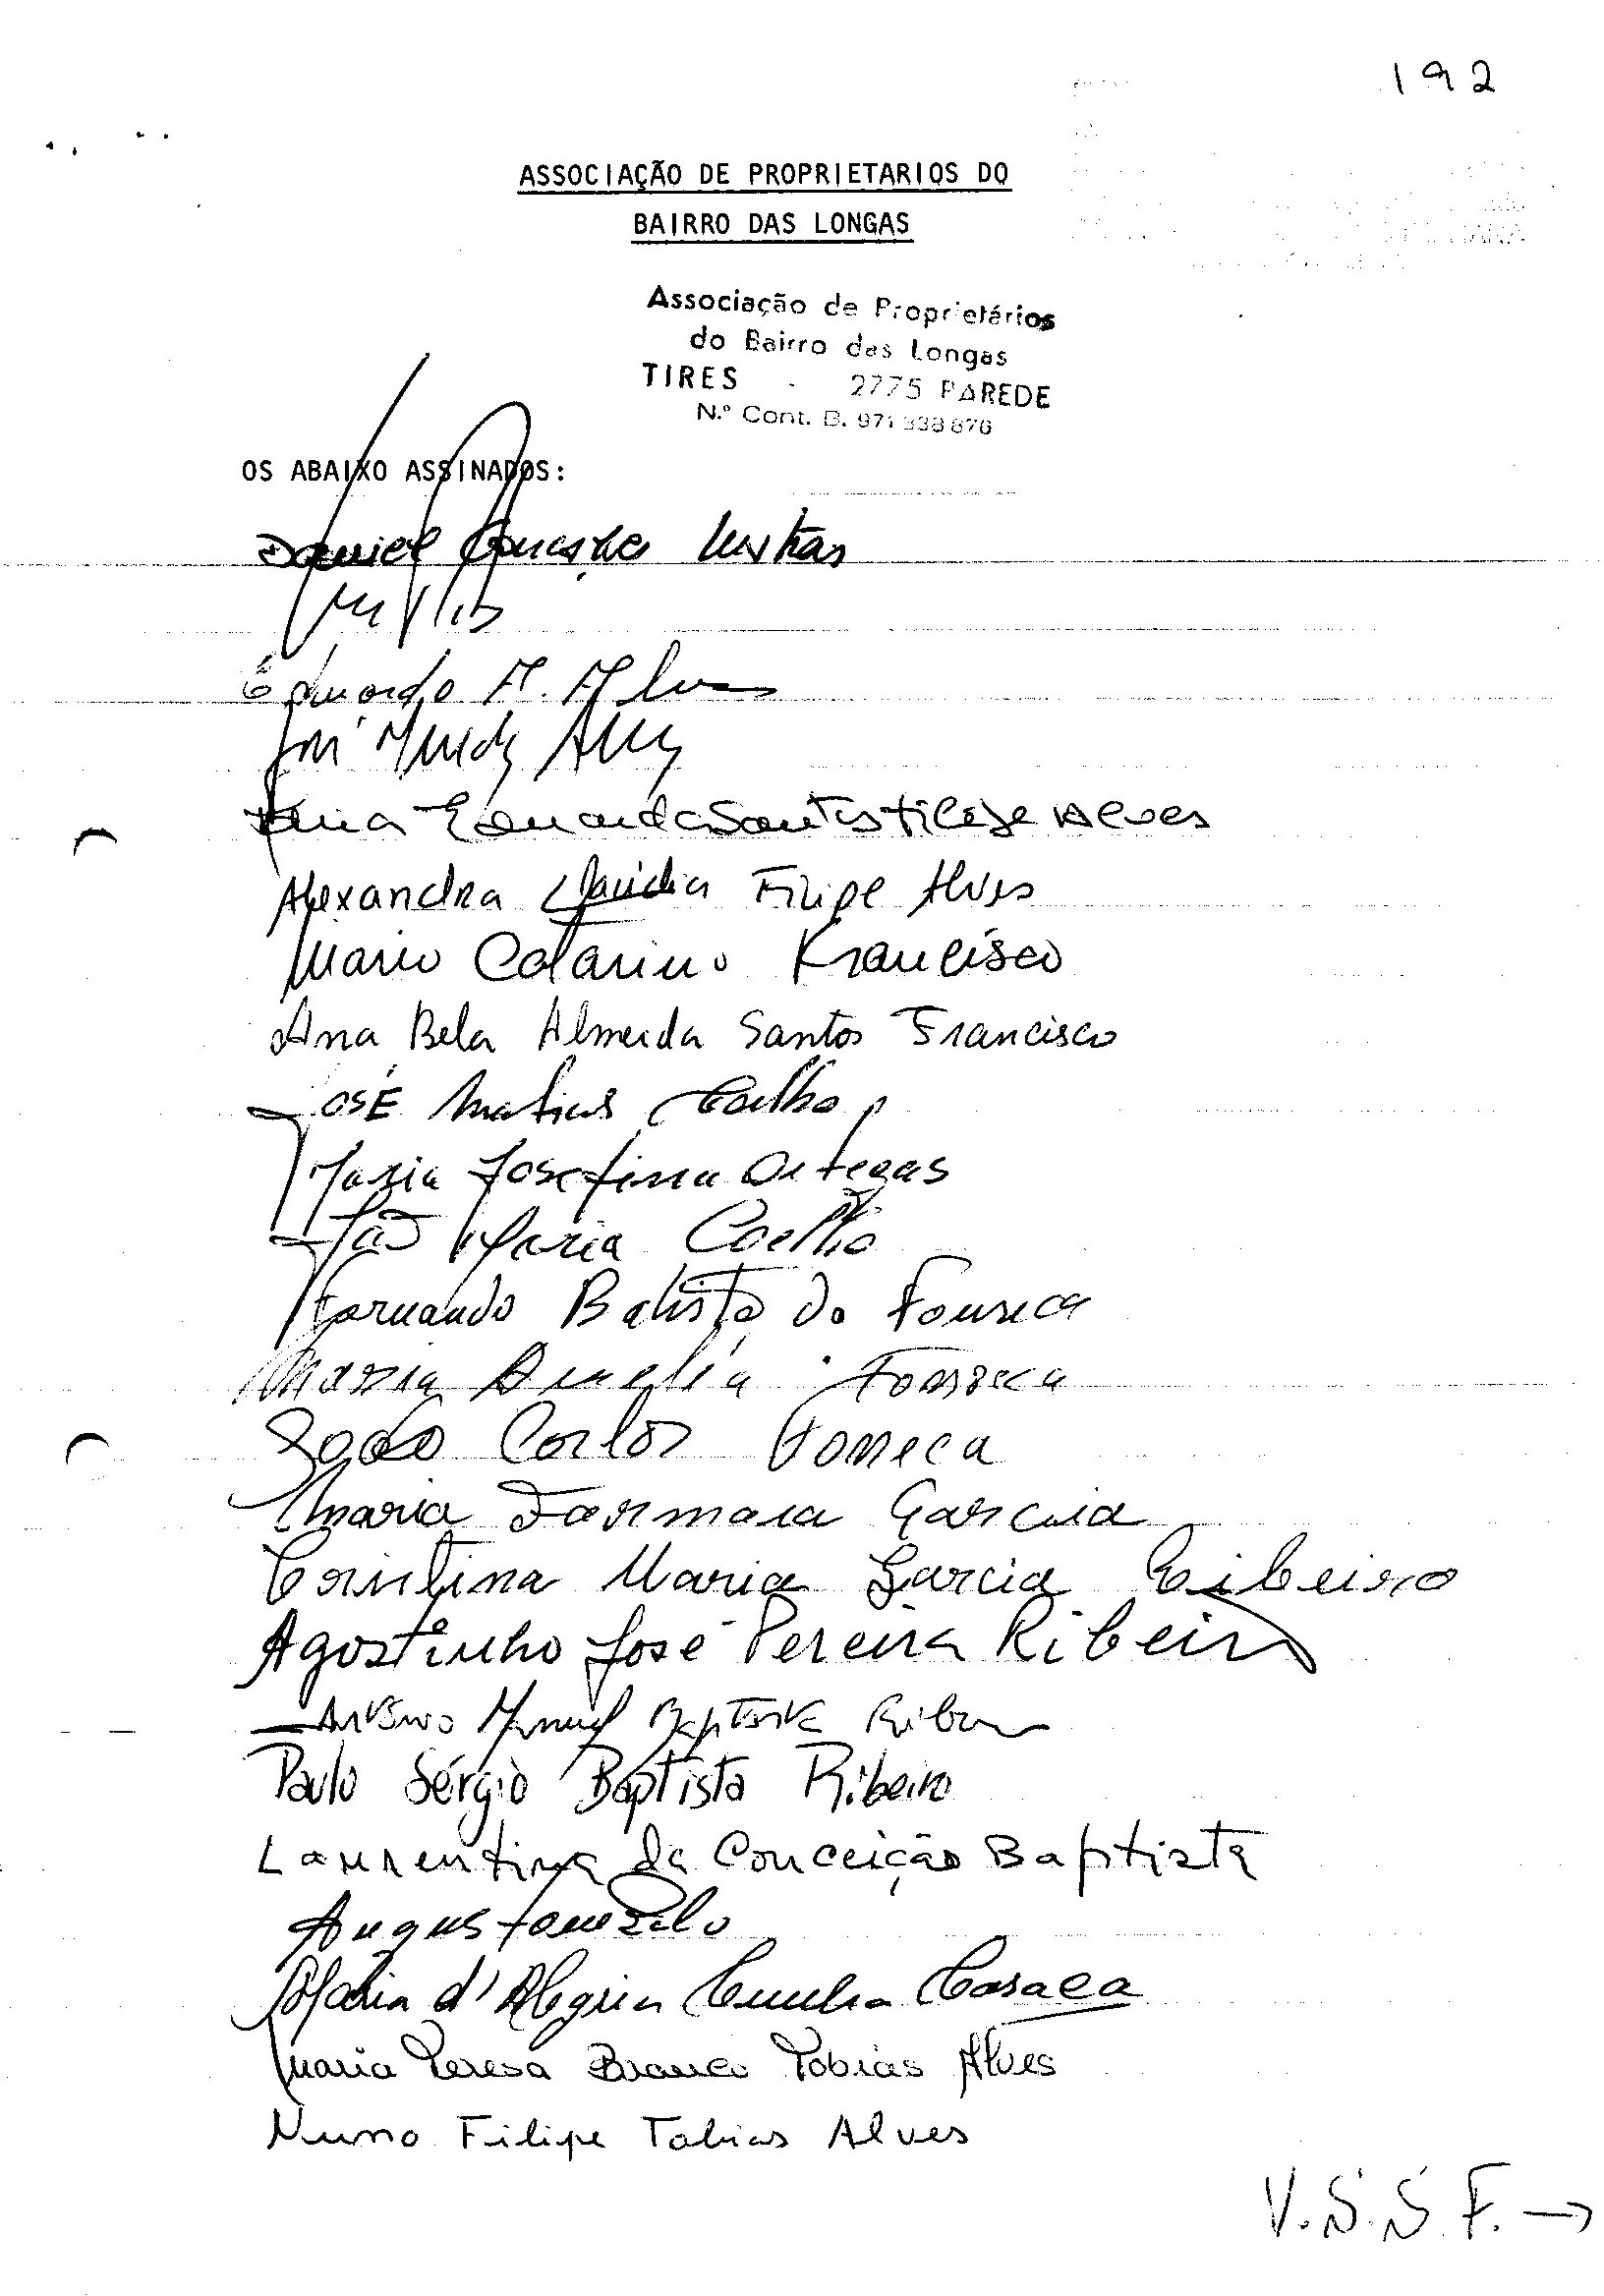 192
ASSOCIAÇÃO DE PROPRIETARIOS DO
BAIRRO DAS LONGAS
Associação de Proprietários
do Bairro das Longas
TIRES - 2775 PAREDE
N.º Cont. B. 971 338 876
OS ABAIXO ASSINADOS:
Daniel
Eduardo A. Alves
José Alves
Eduarda Santos Filipe Alves
Alexandra Claúdia Filipe Alves
Mario Catarino Francisco
Ana Bela Almeida Santos Francisco
JOSÉ Matias Coelho
Maria Josefina Ortegas
João Maria Coelho
Fernando Batista da Fonseca
Maria Amelia Fonseca
João Carlos Fonseca
Maria Garcia
Cristina Maria Garcia Ribeiro
Agostinho José Pereira Ribeiro
António Manuel Baptista Ribeiro
Paulo Sérgio Baptista Ribeiro
Laurentina da Conceição Baptista
Augusto
Maria d'Alegria Cunha Casaca
Maria Teresa Branco Tobias Alves
Nuno Filipe Tobias Alves
V.S.S.F. →